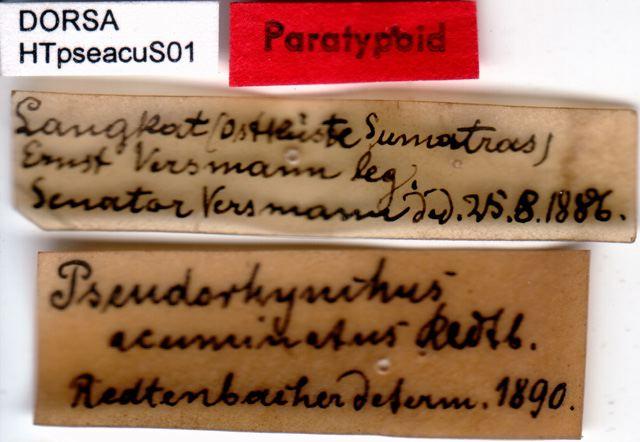 DORSA
HTpseacuS01
Paratypoid
Langkat (Ostküste Sumatras)
Ernst Versmann leg.
Senator Versmann ded. 25.8.1886.
Pseudorhynchus
acuminatus Redtb.
Redtenbacher determ. 1890.